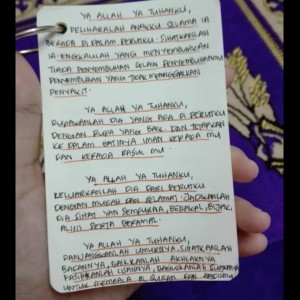 YA ALLAH YA TUHANKU,
PELIHARALAH ANAKKU SELAMA IA
BERADA DI DALAM PERUTKU. SIHATKANLAH
IA. ENGKAULAH YANG MENYEMBUHKAN
TIADA PENYEMBUHAN SELAIN PENYEMBUHANMU
PENYEMBUHAN YANG TIDAK MENINGGALKAN
PENYAKIT.
YA ALLAH YA TUHANKU,
RUPAKANLAH DIA YANG ADA DI PERUTKU
DENGAN RUPA YANG BAIK. DAN TETAPKAN
KE DALAM HATINYA IMAN KEPADA MU
DAN KEPADA RASUL MU.
YA ALLAH YA TUHANKU,
KELUARKANLAH DIA DARI PERUTKU
DENGAN MUDAH DAN SELAMAT. JADIKANLAH
DIA SIHAT YAN SEMPURNA, BERAKAL, BIJAK,
ALIM SERTA BERAMAL.
YA ALLAH YA TUHANKU,
PANJANGKANLAH UMURNYA. SIHATKANLAH
BADANNYA, BAIKKANLAH AKHLAKNYA,
FASIHKANLAH LISANNYA,
UNTUK MEMBACA AL QURAN DAN